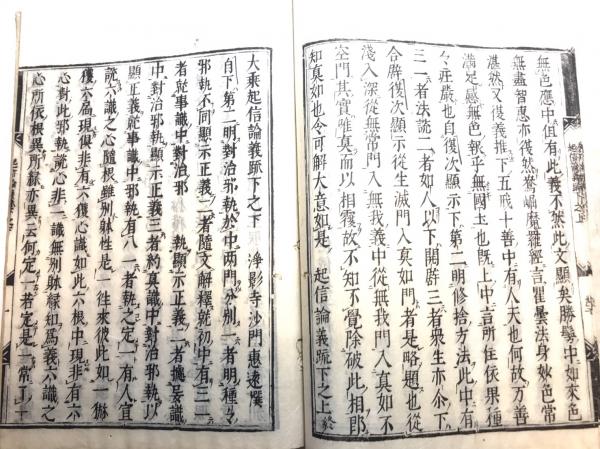 無色應中但有此義不然此文顯矣勝鬘中如來色
無盡智惠亦復然鴦崛魔羅經言瞿曇法身妙色常
湛然又後義推下五戒十善中有人天也何故万善
滿足感無色報乎無國土也既上中言所住依果種
々莊嚴也自復次顯示下第二明修捨方法此中有
三一者法説二者如人以下開辟三者衆生亦尒下
合辟復次顯示從生滅門入真如門者是略題也從
淺入深從無常門入無我義中從無我門入真如不
空門其實離莫而以相覆故不知不覺除破此相即
知真如也令可解大意如是　起信論義疏下之上終
大乘起信論義疏下之下　淨影寺沙門惠遠撰
自下第二明對治邪執於中兩門分別一者明種々
邪執不同顯示正義二者隨文解釋就初中有三一
者從事識中對治邪　執顯示正義二者據妄識
中對治邪執顯示正義三者約真識中對治邪執以
顯正義從事識中邪執有八一者執之定一有人宣
説六識之心隨根雖別躰性是一往來彼此如一猕
猴六窓現俱非有六獲心識如此六根中現非有六
心對此邪執説心非一識無別躰緑知爲義六識之
心所依根異所緑亦異云何定一若定是一常丁一